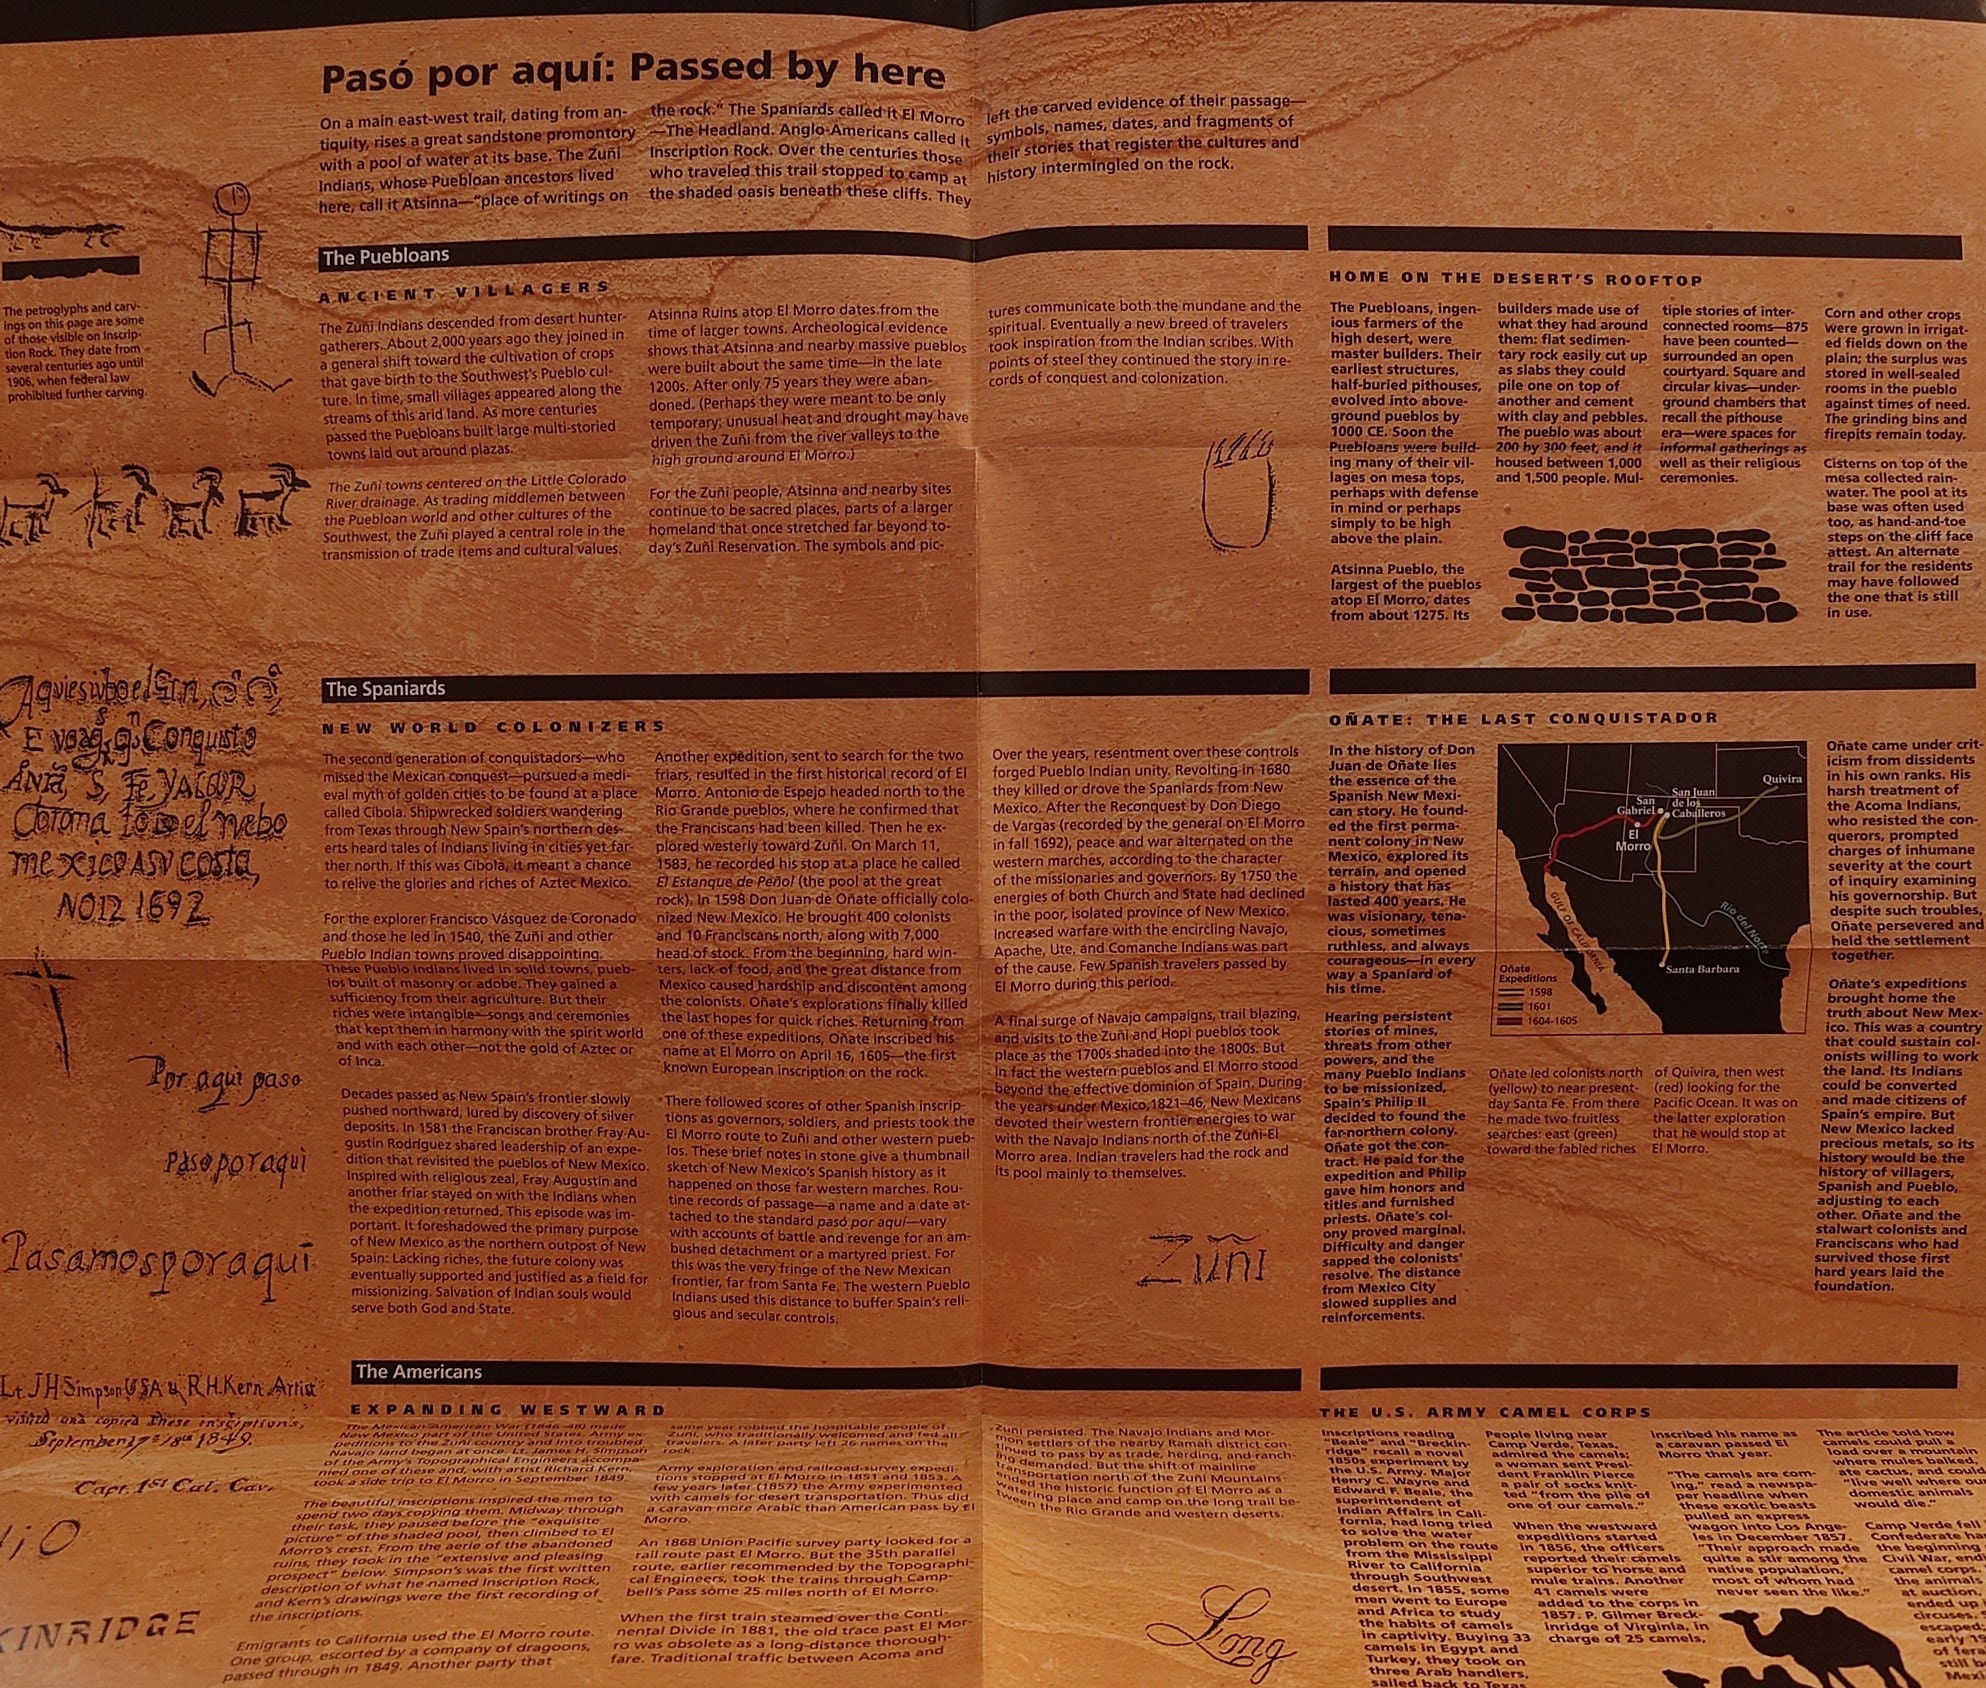 Pasó por aquí: Passed by here
On a main east-west trail, dating from an-
tiquity, rises a great sandstone promontory
with a pool of water at its base. The Zuñi
Indians, whose Puebloan ancestors lived
here, call it Atsinna—"place of writings on
the rock." The Spaniards called it El Morro
—The Headland. Anglo-Americans called it
Inscription Rock. Over the centuries those
who traveled this trail stopped to camp at
the shaded oasis beneath these cliffs. They
left the carved evidence of their passage—
symbols, names, dates, and fragments of
their stories that register the cultures and
history intermingled on the rock.
The petroglyphs and carv-
ings on this page are some
of those visible on Inscrip-
tion Rock. They date from
several centuries ago until
1906, when federal law
prohibited further carving.
The Puebloans
ANCIENT VILLAGERS
The Zuñi Indians descended from desert hunter-
gatherers. About 2,000 years ago they joined in
a general shift toward the cultivation of crops
that gave birth to the Southwest's Pueblo cul-
ture. In time, small villages appeared along the
streams of this arid land. As more centuries
passed the Puebloans built large multi-storied
towns laid out around plazas.
The Zuñi towns centered on the Little Colorado
River drainage. As trading middlemen between
the Puebloan world and other cultures of the
Southwest, the Zuñi played a central role in the
transmission of trade items and cultural values.
Atsinna Ruins atop El Morro dates from the
time of larger towns. Archeological evidence
shows that Atsinna and nearby massive pueblos
were built about the same time—in the late
1200s. After only 75 years they were aban-
doned. (Perhaps they were meant to be only
temporary; unusual heat and drought may have
driven the Zuñi from the river valleys to the
high ground around El Morro.)
For the Zuñi people, Atsinna and nearby sites
continue to be sacred places, parts of a larger
homeland that once stretched far beyond to-
day's Zuñi Reservation. The symbols and pic-
tures communicate both the mundane and the
spiritual. Eventually a new breed of travelers
took inspiration from the Indian scribes. With
points of steel they continued the story in re-
cords of conquest and colonization.
HOME ON THE DESERT'S ROOFTOP
The Puebloans, ingen-
ious farmers of the
high desert, were
master builders. Their
earliest structures,
half-buried pithouses,
evolved into above-
ground pueblos by
1000 CE. Soon the
Puebloans were build-
ing many of their vil-
lages on mesa tops,
perhaps with defense
in mind or perhaps
simply to be high
above the plain.
Atsinna Pueblo, the
largest of the pueblos
atop El Morro, dates
from about 1275. Its
builders made use of
what they had around
them: flat sedimen-
tary rock easily cut up
as slabs they could
pile one on top of
another and cement
with clay and pebbles.
The pueblo was about
200 by 300 feet, and it
housed between 1,000
and 1,500 people. Mul-
tiple stories of inter-
connected rooms—875
have been counted—
surrounded an open
courtyard. Square and
circular kivas—under-
ground chambers that
recall the pithouse
era—were spaces for
informal gatherings as
well as their religious
ceremonies.
Corn and other crops
were grown in irrigat-
ed fields down on the
plain; the surplus was
stored in well-sealed
rooms in the pueblo
against times of need.
The grinding bins and
firepits remain today.
Cisterns on top of the
mesa collected rain-
water. The pool at its
base was often used
too, as hand-and-toe
steps on the cliff face
attest. An alternate
trail for the residents
may have followed
the one that is still
in use.
Conquisto
mexico ASV costa,
1692
Por aqui paso
Paso por aqui
Pasamosporaqui
The Spaniards
NEW WORLD COLONIZERS
The second generation of conquistadors—who
missed the Mexican conquest—pursued a medi-
eval myth of golden cities to be found at a place
called Cibola. Shipwrecked soldiers wandering
from Texas through New Spain's northern des-
erts heard tales of Indians living in cities yet far-
ther north. If this was Cibola, it meant a chance
to relive the glories and riches of Aztec Mexico.
For the explorer Francisco Vásquez de Coronado
and those he led in 1540, the Zuñi and other
Pueblo Indian towns proved disappointing.
These Pueblo Indians lived in solid towns, pueb-
los built of masonry or adobe. They gained a
sufficiency from their agriculture. But their
riches were intangible—songs and ceremonies
that kept them in harmony with the spirit world
and with each other—not the gold of Aztec or
of Inca.
Decades passed as New Spain's frontier slowly
pushed northward, lured by discovery of silver
deposits. In 1581 the Franciscan brother Fray Au-
gustin Rodríguez shared leadership of an expe-
dition that revisited the pueblos of New Mexico.
Inspired with religious zeal, Fray Augustin and
another friar stayed on with the Indians when
the expedition returned. This episode was im-
portant. It foreshadowed the primary purpose
of New Mexico as the northern outpost of New
Spain: Lacking riches, the future colony was
eventually supported and justified as a field for
missionizing. Salvation of Indian souls would
serve both God and State.
Another expedition, sent to search for the two
friars, resulted in the first historical record of El
Morro. Antonio de Espejo headed north to the
Rio Grande pueblos, where he confirmed that
the Franciscans had been killed. Then he ex-
plored westerly toward Zuñi. On March 11,
1583, he recorded his stop at a place he called
El Estanque de Peñol (the pool at the great
rock). In 1598 Don Juan de Oñate officially colo-
nized New Mexico. He brought 400 colonists
and 10 Franciscans north, along with 7,000
head of stock. From the beginning, hard win-
ters, lack of food, and the great distance from
Mexico caused hardship and discontent among
the colonists. Oñate's explorations finally killed
the last hopes for quick riches. Returning from
one of these expeditions, Oñate inscribed his
name at El Morro on April 16, 1605—the first
known European inscription on the rock.
There followed scores of other Spanish inscrip-
tions as governors, soldiers, and priests took the
El Morro route to Zuñi and other western pueb-
los. These brief notes in stone give a thumbnail
sketch of New Mexico's Spanish history as it
happened on those far western marches. Rou-
tine records of passage—a name and a date at-
tached to the standard pasó por aquí—vary
with accounts of battle and revenge for an am-
bushed detachment or a martyred priest. For
this was the very fringe of the New Mexican
frontier, far from Santa Fe. The western Pueblo
Indians used this distance to buffer Spain's reli-
gious and secular controls.
Over the years, resentment over these controls
forged Pueblo Indian unity. Revolting in 1680
they killed or drove the Spaniards from New
Mexico. After the Reconquest by Don Diego
de Vargas (recorded by the general on El Morro
in fall 1692), peace and war alternated on the
western marches, according to the character
of the missionaries and governors. By 1750 the
energies of both Church and State had declined
in the poor, isolated province of New Mexico.
Increased warfare with the encircling Navajo,
Apache, Ute, and Comanche Indians was part
of the cause. Few Spanish travelers passed by
El Morro during this period.
A final surge of Navajo campaigns, trail blazing,
and visits to the Zuñi and Hopi pueblos took
place as the 1700s shaded into the 1800s. But
in fact the western pueblos and El Morro stood
beyond the effective dominion of Spain. During
the years under Mexico,1821–46, New Mexicans
devoted their western frontier energies to war
with the Navajo Indians north of the Zuñi-El
Morro area. Indian travelers had the rock and
its pool mainly to themselves.
Zuñi
OÑATE: THE LAST CONQUISTADOR
In the history of Don
Juan de Oñate lies
the essence of the
Spanish New Mexi-
can story. He found-
ed the first perma-
nent colony in New
Mexico, explored its
terrain, and opened
a history that has
lasted 400 years. He
was visionary, tena-
cious, sometimes
ruthless, and always
courageous—in every
way a Spaniard of
his time.
Hearing persistent
stories of mines,
threats from other
powers, and the
many Pueblo Indians
to be missionized,
Spain's Philip II
decided to found the
far-northern colony.
Oñate got the con-
tract. He paid for the
expedition and Philip
gave him honors and
titles and furnished
priests. Oñate's col-
ony proved marginal.
Difficulty and danger
sapped the colonists'
resolve. The distance
from Mexico City
slowed supplies and
reinforcements.
Quivira
San Juan
de los
Caballeros
San
Gabriel
El
Morro
GULF OF CALIFORNIA
Rio del Norte
Santa Barbara
Oñate
Expeditions
1598
1601
1604-1605
Oñate led colonists north
(yellow) to near present-
day Santa Fe. From there
he made two fruitless
searches: east (green)
toward the fabled riches
of Quivira, then west
(red) looking for the
Pacific Ocean. It was on
the latter exploration
that he would stop at
El Morro.
Oñate came under crit-
icism from dissidents
in his own ranks. His
harsh treatment of
the Acoma Indians,
who resisted the con-
querors, prompted
charges of inhumane
severity at the court
of inquiry examining
his governorship. But
despite such troubles,
Oñate persevered and
held the settlement
together.
Oñate's expeditions
brought home the
truth about New Mex-
ico. This was a country
that could sustain col-
onists willing to work
the land. Its Indians
could be converted
and made citizens of
Spain's empire. But
New Mexico lacked
precious metals, so its
history would be the
history of villagers,
Spanish and Pueblo,
adjusting to each
other. Oñate and the
stalwart colonists and
Franciscans who had
survived those first
hard years laid the
foundation.
Lt. JH Simpson USA & R.H. Kern Artist
visited and copied these inscriptions,
September 17th 18th 1849.
Capt. 1st Cal. Cav.
KINRIDGE
The Americans
EXPANDING WESTWARD
The Mexican-American War (1846–48) made
New Mexico part of the United States. Army ex-
peditions to the Zuñi country and into troubled
Navajo land began at once. Lt. James H. Simpson
of the Army's Topographical Engineers accompa-
nied one of these and, with artist Richard Kern,
took a side trip to El Morro in September 1849.
The beautiful inscriptions inspired the men to
spend two days copying them. Midway through
their task, they paused before the "exquisite
picture" of the shaded pool, then climbed to El
Morro's crest. From the aerie of the abandoned
ruins, they took in the "extensive and pleasing
prospect" below. Simpson's was the first written
description of what he named Inscription Rock,
and Kern's drawings were the first recording of
the inscriptions.
Emigrants to California used the El Morro route.
One group, escorted by a company of dragoons,
passed through in 1849. Another party that
same year robbed the hospitable people of
Zuñi, who traditionally welcomed and fed all
travelers. A later party left 26 names on the
rock.
Army exploration and railroad-survey expedi-
tions stopped at El Morro in 1851 and 1853. A
few years later (1857) the Army experimented
with camels for desert transportation. Thus did
a caravan more Arabic than American pass by El
Morro.
An 1868 Union Pacific survey party looked for a
rail route past El Morro. But the 35th parallel
route, earlier recommended by the Topographi-
cal Engineers, took the trains through Camp-
bell's Pass some 25 miles north of El Morro.
When the first train steamed over the Conti-
nental Divide in 1881, the old trace past El Mor-
ro was obsolete as a long-distance thorough-
fare. Traditional traffic between Acoma and
Zuñi persisted. The Navajo Indians and Mor-
mon settlers of the nearby Ramah district con-
tinued to pass by as trade, herding, and ranch-
ing demanded. But the shift of mainline
transportation north of the Zuñi Mountains
ended the historic function of El Morro as a
watering place and camp on the long trail be-
tween the Rio Grande and western deserts.
Long
THE U.S. ARMY CAMEL CORPS
Inscriptions reading
"Beale" and "Breckin-
ridge" recall a novel
1850s experiment by
the U.S. Army. Major
Henry C. Wayne and
Edward F. Beale, the
superintendent of
Indian Affairs in Cali-
fornia, had long tried
to solve the water
problem on the route
from the Mississippi
River to California
through Southwest
desert. In 1855, some
men went to Europe
and Africa to study
the habits of camels
in captivity. Buying 33
camels in Egypt and
Turkey, they took on
three Arab handlers,
sailed back to Texas
People living near
Camp Verde, Texas,
admired the camels;
a woman sent Presi-
dent Franklin Pierce
a pair of socks knit-
ted "from the pile of
one of our camels."
When the westward
expeditions started
in 1856, the officers
reported their camels
superior to horse and
mule trains. Another
41 camels were
added to the corps in
1857. P. Gilmer Breck-
inridge of Virginia, in
charge of 25 camels,
inscribed his name as
a caravan passed El
Morro that year.
"The camels are com-
ing," read a newspa-
per headline when
these exotic beasts
pulled an express
wagon into Los Ange-
les in December 1857.
"Their approach made
quite a stir among the
native population,
most of whom had
never seen the like."
The article told how
camels could pull a
load over a mountain
where mules balked,
ate cactus, and could
"live well where our
domestic animals
would die."
Camp Verde fell
Confederate
the beginning
Civil War,
camel corps.
the animals
at auction,
ended up
circuses.
escaped;
early
of
still